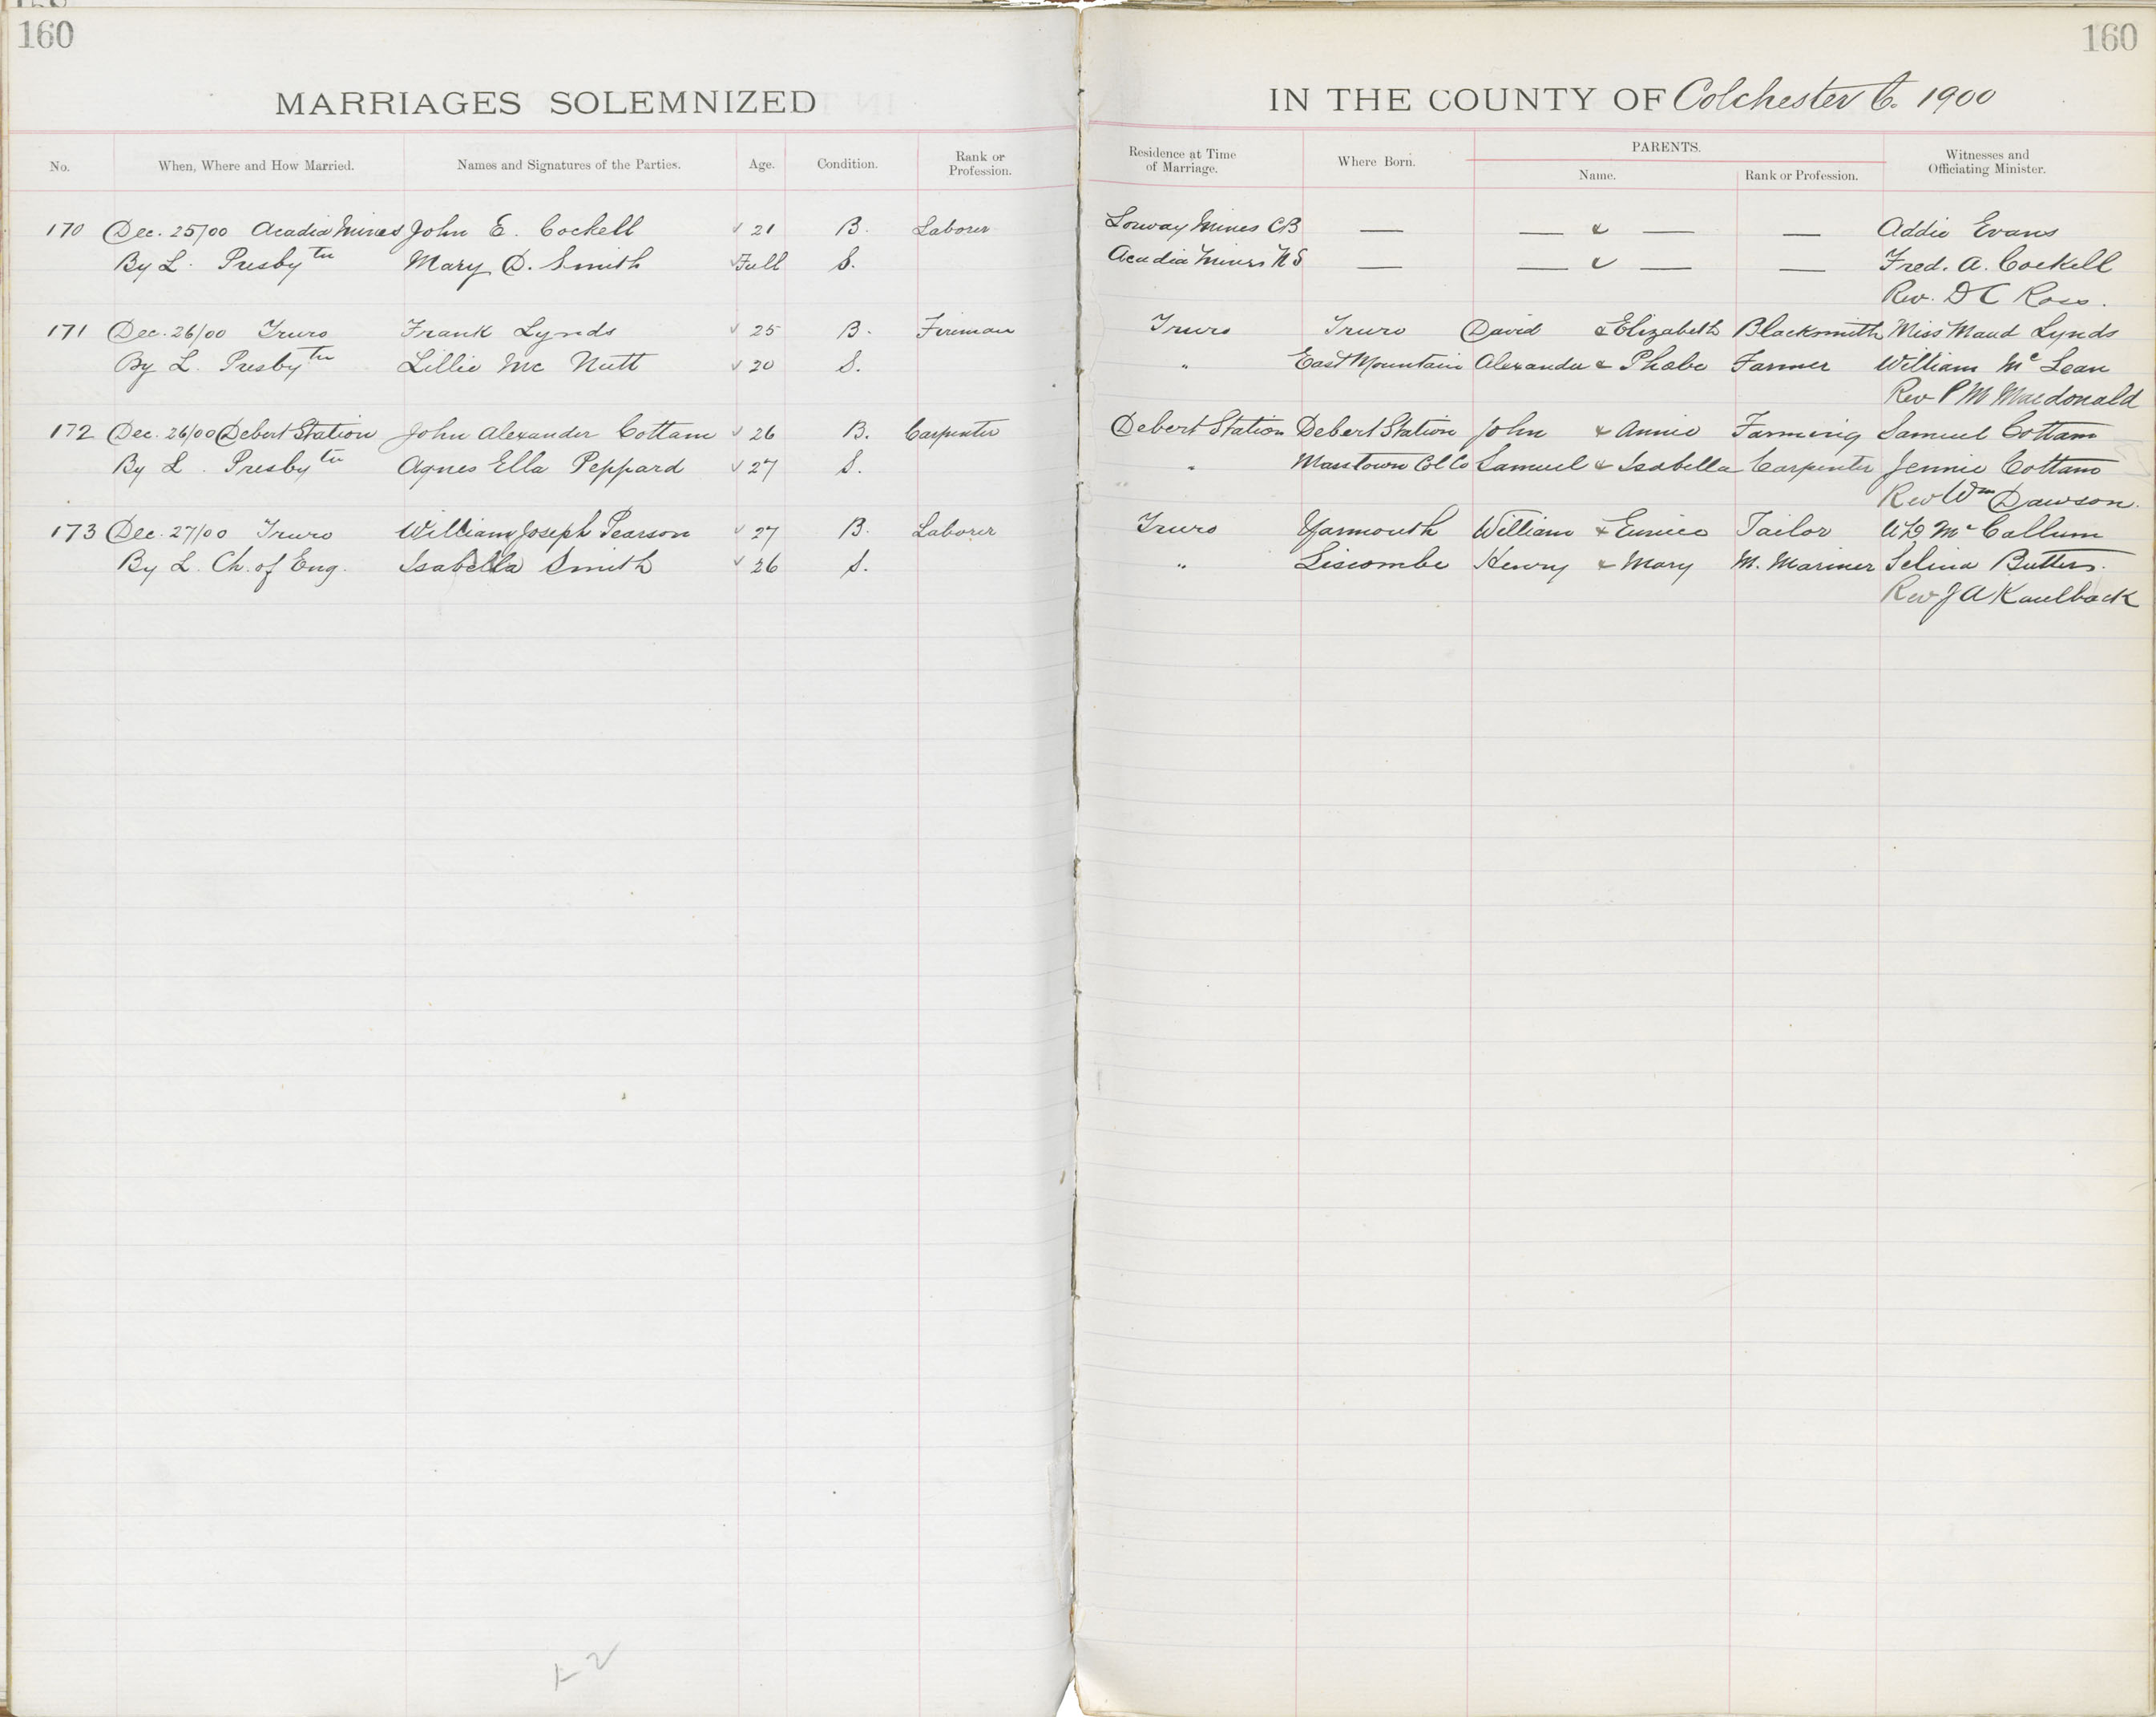 160
160
MARRIAGES SOLEMNIZED IN THE COUNTY OF Colchester Co. 1900
No. When, Where and How Married. Names and Signatures of the Parties. Age. Condition. Rank or Profession. Residence at Time of Marriage. Where Born. PARENTS. Name. Rank or Profession. Witnesses and Officiating Minister.
170 Dec. 25/00 Acadia Mines John E. Cockell 21 B. Laborer Lorway Mines CB — — & — — Addie Evans
By L. Presbytn Mary D. Smith Full S. Acadia Mines NS — — & — — Fred. A. Cockell
Rev. D C Ross.
171 Dec. 26/00 Truro Frank Lynds 25 B. Fireman Truro Truro David & Elizabeth Blacksmith Miss Maud Lynds
By L. Presbytn Lillie Mc Nutt 20 S. " East Mountain Alexander & Phobe Farmer William Mc Lean
Rev P M Macdonald
172 Dec. 26/00 Debert Station John Alexander Cottam 26 B. Carpenter Debert Station Debert Station John & Annie Farming Samuel Cottam
By L. Presbytn Agnes Ella Peppard 27 S. " Masstown Col Co Samuel & Isabella Carpenter Jennie Cottam
Rev Wm Dawson.
173 Dec. 27/00 Truro William Joseph Pearson 27 B. Laborer Truro Yarmouth William & Eunice Tailor Mc Callum
By L. Ch. of Eng. Isabella Smith 26 S. " Liscombe Henry & Mary M. Mariner Selina Butters.
Rev J A Kaulback